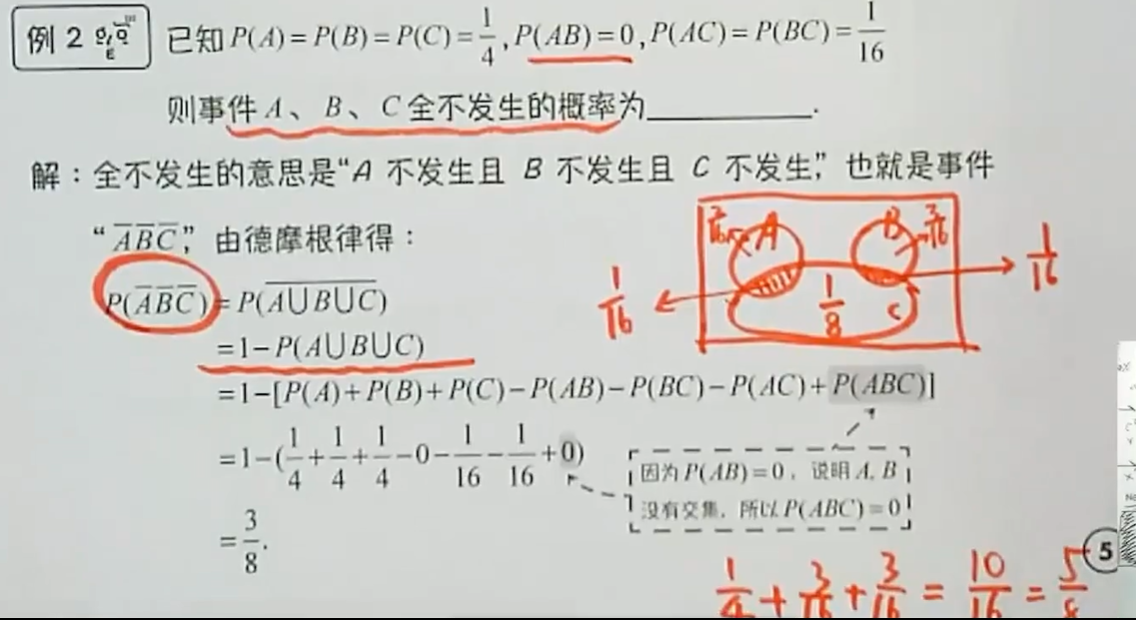 例 2 已知 P(A)=P(B)=P(C)=1/4, P(AB)=0, P(AC)=P(BC)=1/16
则事件 A、B、C 全不发生的概率为________.
解：全不发生的意思是“A 不发生且 B 不发生且 C 不发生”，也就是事件
“A̅B̅C̅”，由德摩根律得：
P(A̅B̅C̅)=P(A̅⋃̅B̅⋃̅C̅)
=1-P(A⋃B⋃C)
=1-[P(A)+P(B)+P(C)-P(AB)-P(BC)-P(AC)+P(ABC)]
=1-(1/4+1/4+1/4-0-1/16-1/16+0)
=3/8.
因为 P(AB)=0，说明 A, B
没有交集，所以 P(ABC)=0
A B 3/16
1/16 1/8 C 1/16
1/4+3/16+3/16=10/16=5/8
5